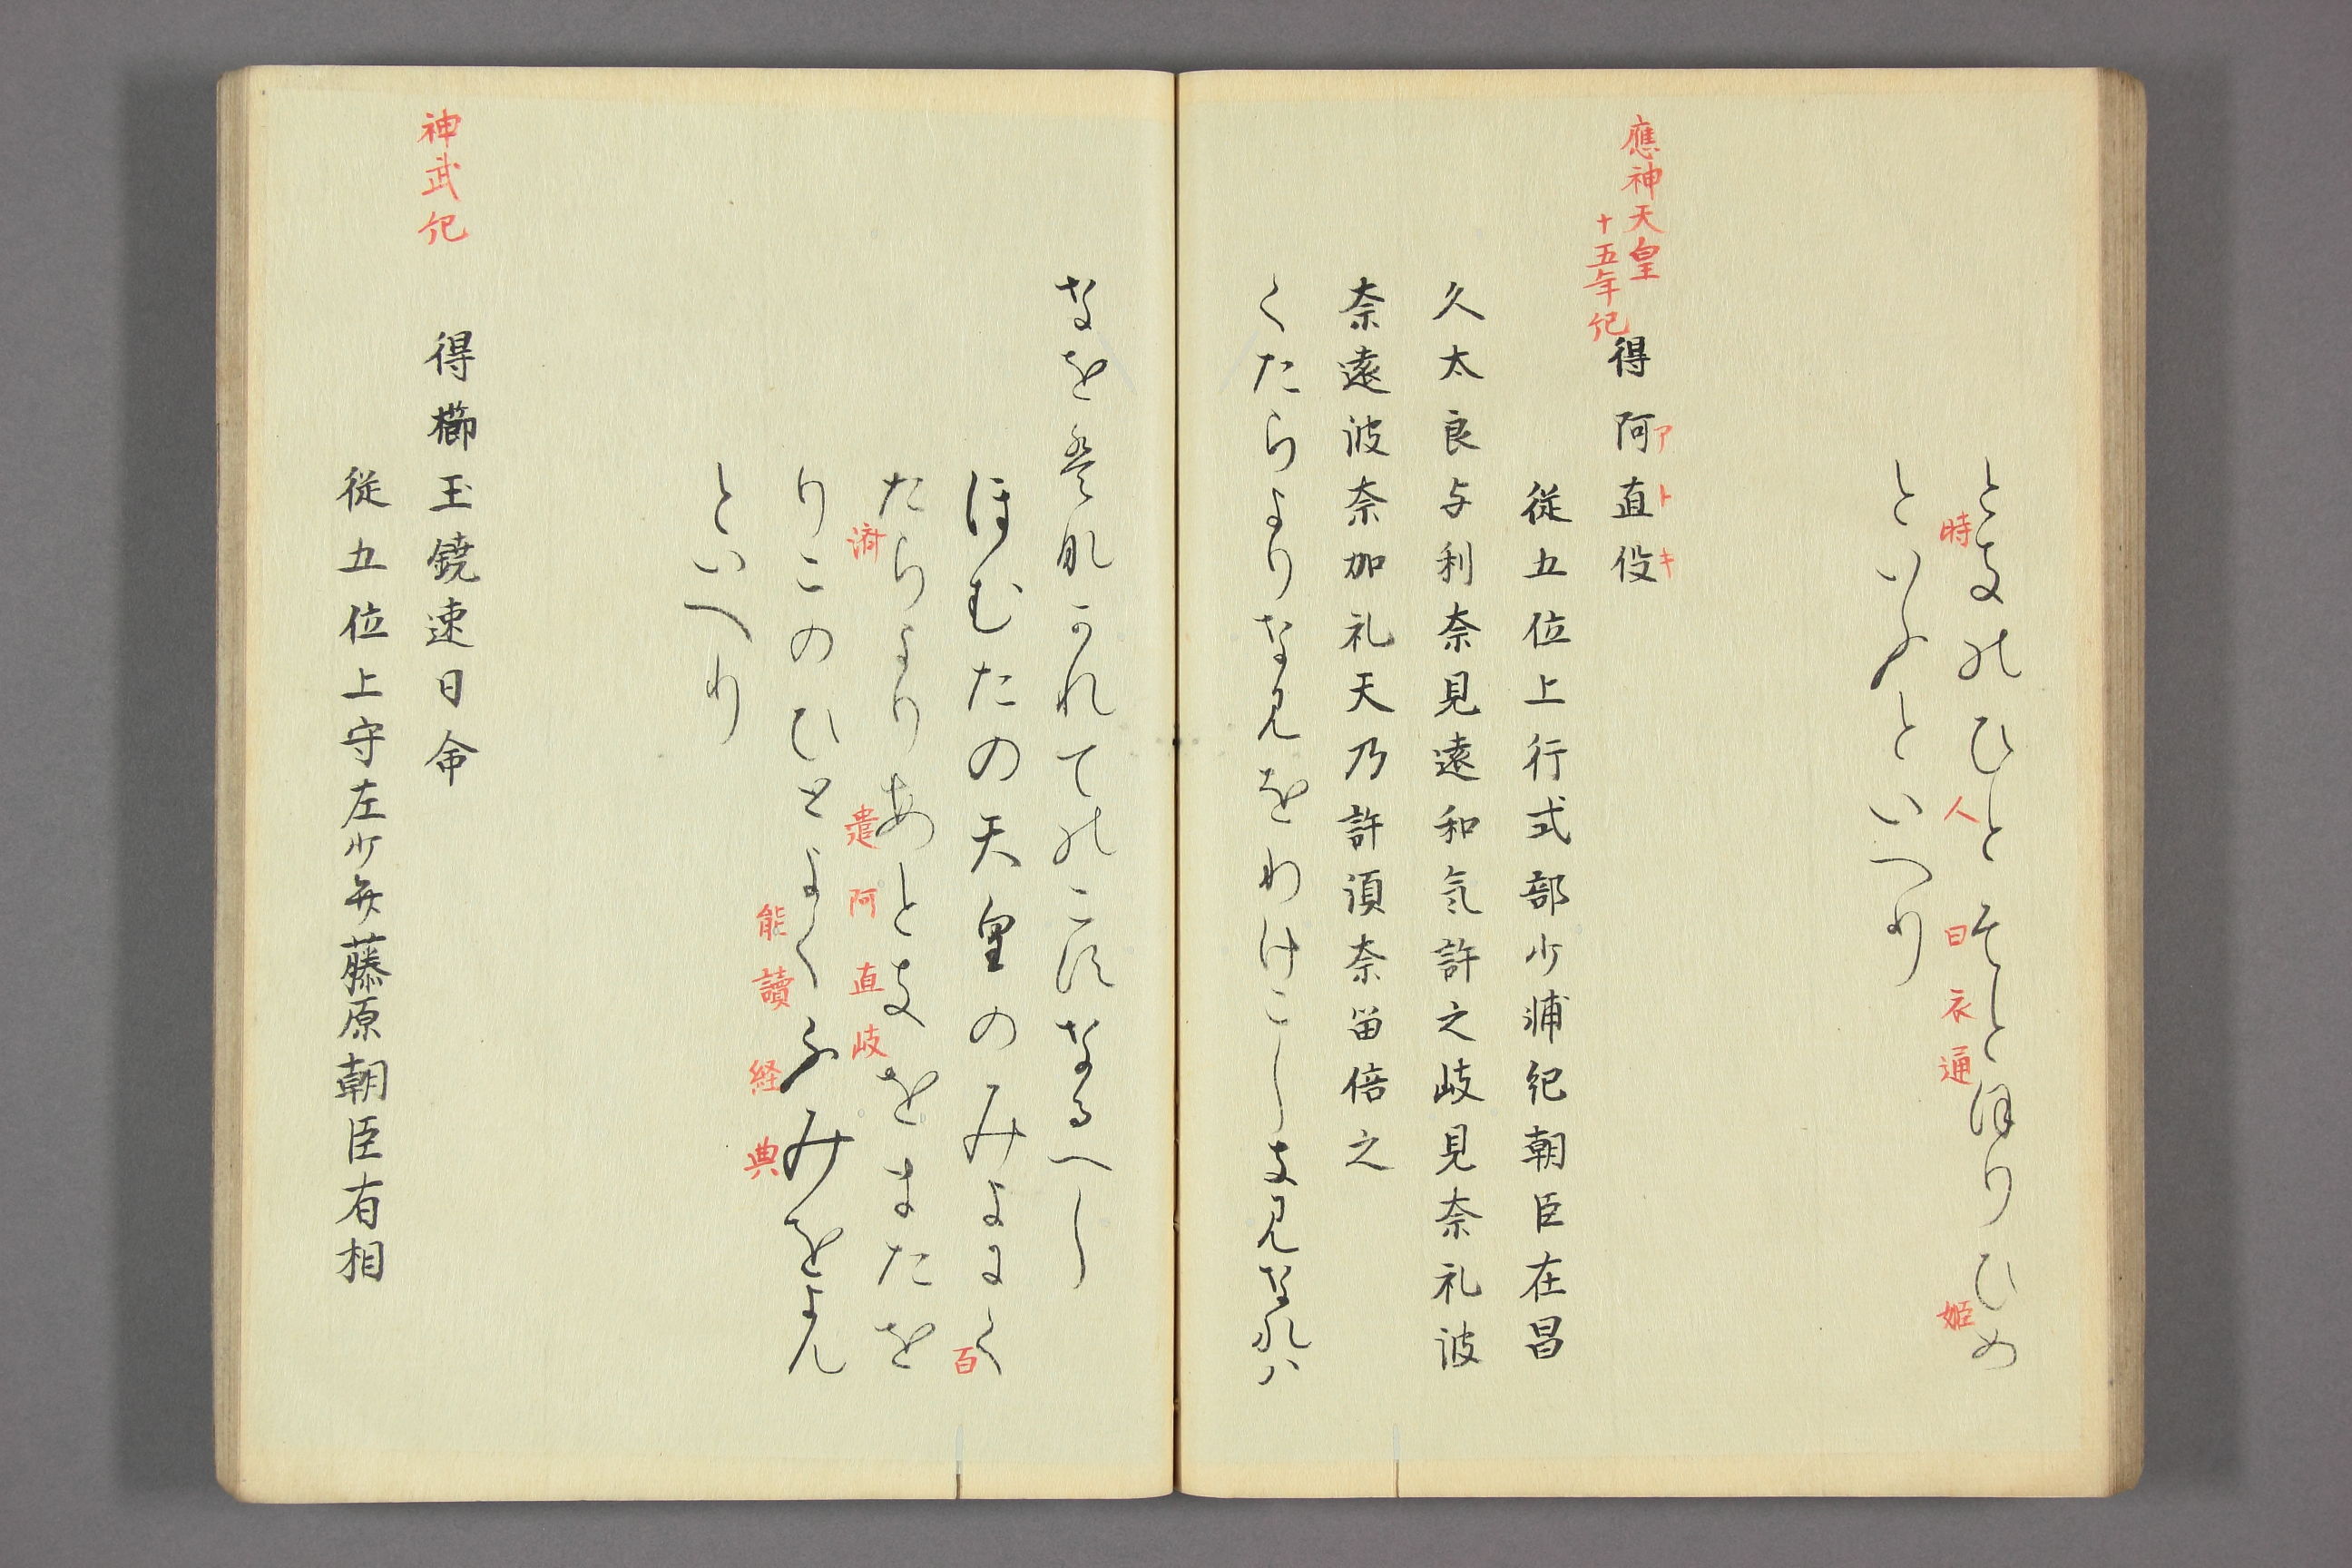 ときのひとそとほりひめ
時 人 曰 衣通 姫
といふといへり
應神天皇
十五年紀
得阿直伎
アトキ
従五位上行式部少浦紀朝臣在昌
久太良与利奈見遠和気許之岐見奈礼波
奈遠波奈加礼天乃許須奈留倍之
くたらよりなみをわけこしきみなれハ
なをはなかれてのこすなるへし
ほむたの天皇のみよにく
百
たらよりあときをまたを
済 遣 阿直岐
りこのひとよくふみをよん
能讀経典
といへり
神武紀
得櫛玉饒速日命
従五位上守左少弁藤原朝臣有相